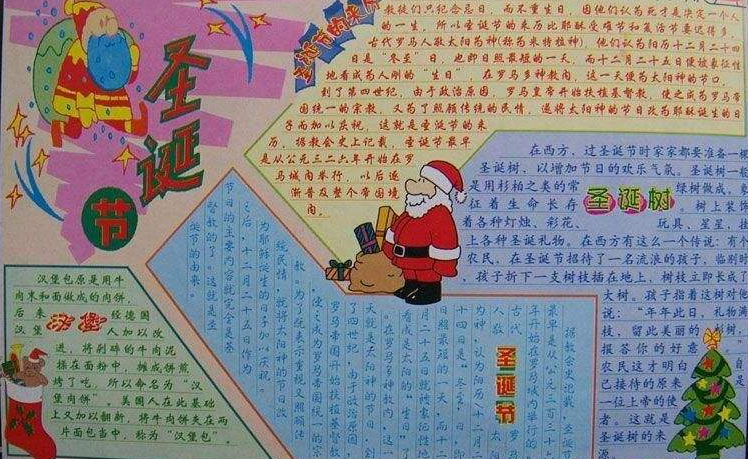 圣诞节
圣诞节的来历
教徒们只纪念忌日，而不重生日，因他们认为死才是决定一个人
的一生，所以圣诞节的来历比耶稣受难节和复活节要迟得多，
古代罗马人敬太阳为神(称为米特拉神)，他们认为阳历十二月二十四
日是“冬至”日，也即日照最短的一天，而十二月二十五日便被象征性
地看成为人刚的“生日”，在罗马多神教内，这一天便为太阳神的节口，
到了第四世纪，由于政治原因，罗马皇帝开始扶植基督教，使之成为罗马帝
国统一的宗教，又为了照顾传统的民情，遂将太阳神的节日改为耶稣诞生的日
子而加以庆祝，这就是圣诞节的来
历，据教会史上记载，圣诞节最早
是从公元三二六年开始在罗
马城内举行，以后逐
渐普及整个帝国境
内。
在西方，过圣诞节时家家都要准备一棵
圣诞树，以增加节日的欢乐气氛。圣诞树一般
是用杉柏之类的常绿树做成，象
圣诞树
征着生命长存。树上装饰
着各种灯烛、彩花、玩具、星星，挂
上各种圣诞礼物。在西方有这么一个传说：有个
农民，在圣诞节招待了一名流浪的孩子，临别时
，孩子折下一支树枝插在地上，树枝立即长成了
大树。孩子指着这树对他
说：“年年此日，礼物满
枝，留此美丽的杉树，
报答你的好意。”
农民这才明白自
己接待的原来是
一位上帝的使
者。这就是
圣诞树的来
源。
汉堡包原是用牛
肉末和面做成的肉饼，
后来经德国
汉堡
汉堡人加以改
进，将剁碎的牛肉泥
揉在面粉中，摊成饼煎
烤了吃，所以命名为“汉
堡肉饼”。美国人在此基础
上又加以翻新，将牛肉饼夹在两
片面包当中，称为“汉堡包”。
圣诞节
据教会史记载，圣诞节
为神，认为阳历十二月二
十四日是“冬至”，即日
日照最短的一天，而十二
月二十五日就被象征性地
看成是太阳的“生日”，
在罗马多神教内，这一
天就是太阳神的节日。到
了四世纪，由于政治原因，
罗马帝国开始扶植基督教，
使之成为罗马帝国统一的宗
教。为了既表示重视又照顾传
统民情，就将太阳神的节日改
为耶稣诞生的日子加以庆祝。
之后，十二月二十五日作为
节日的主要内容就完全是基
督教的了。这就是圣
诞节的由来。